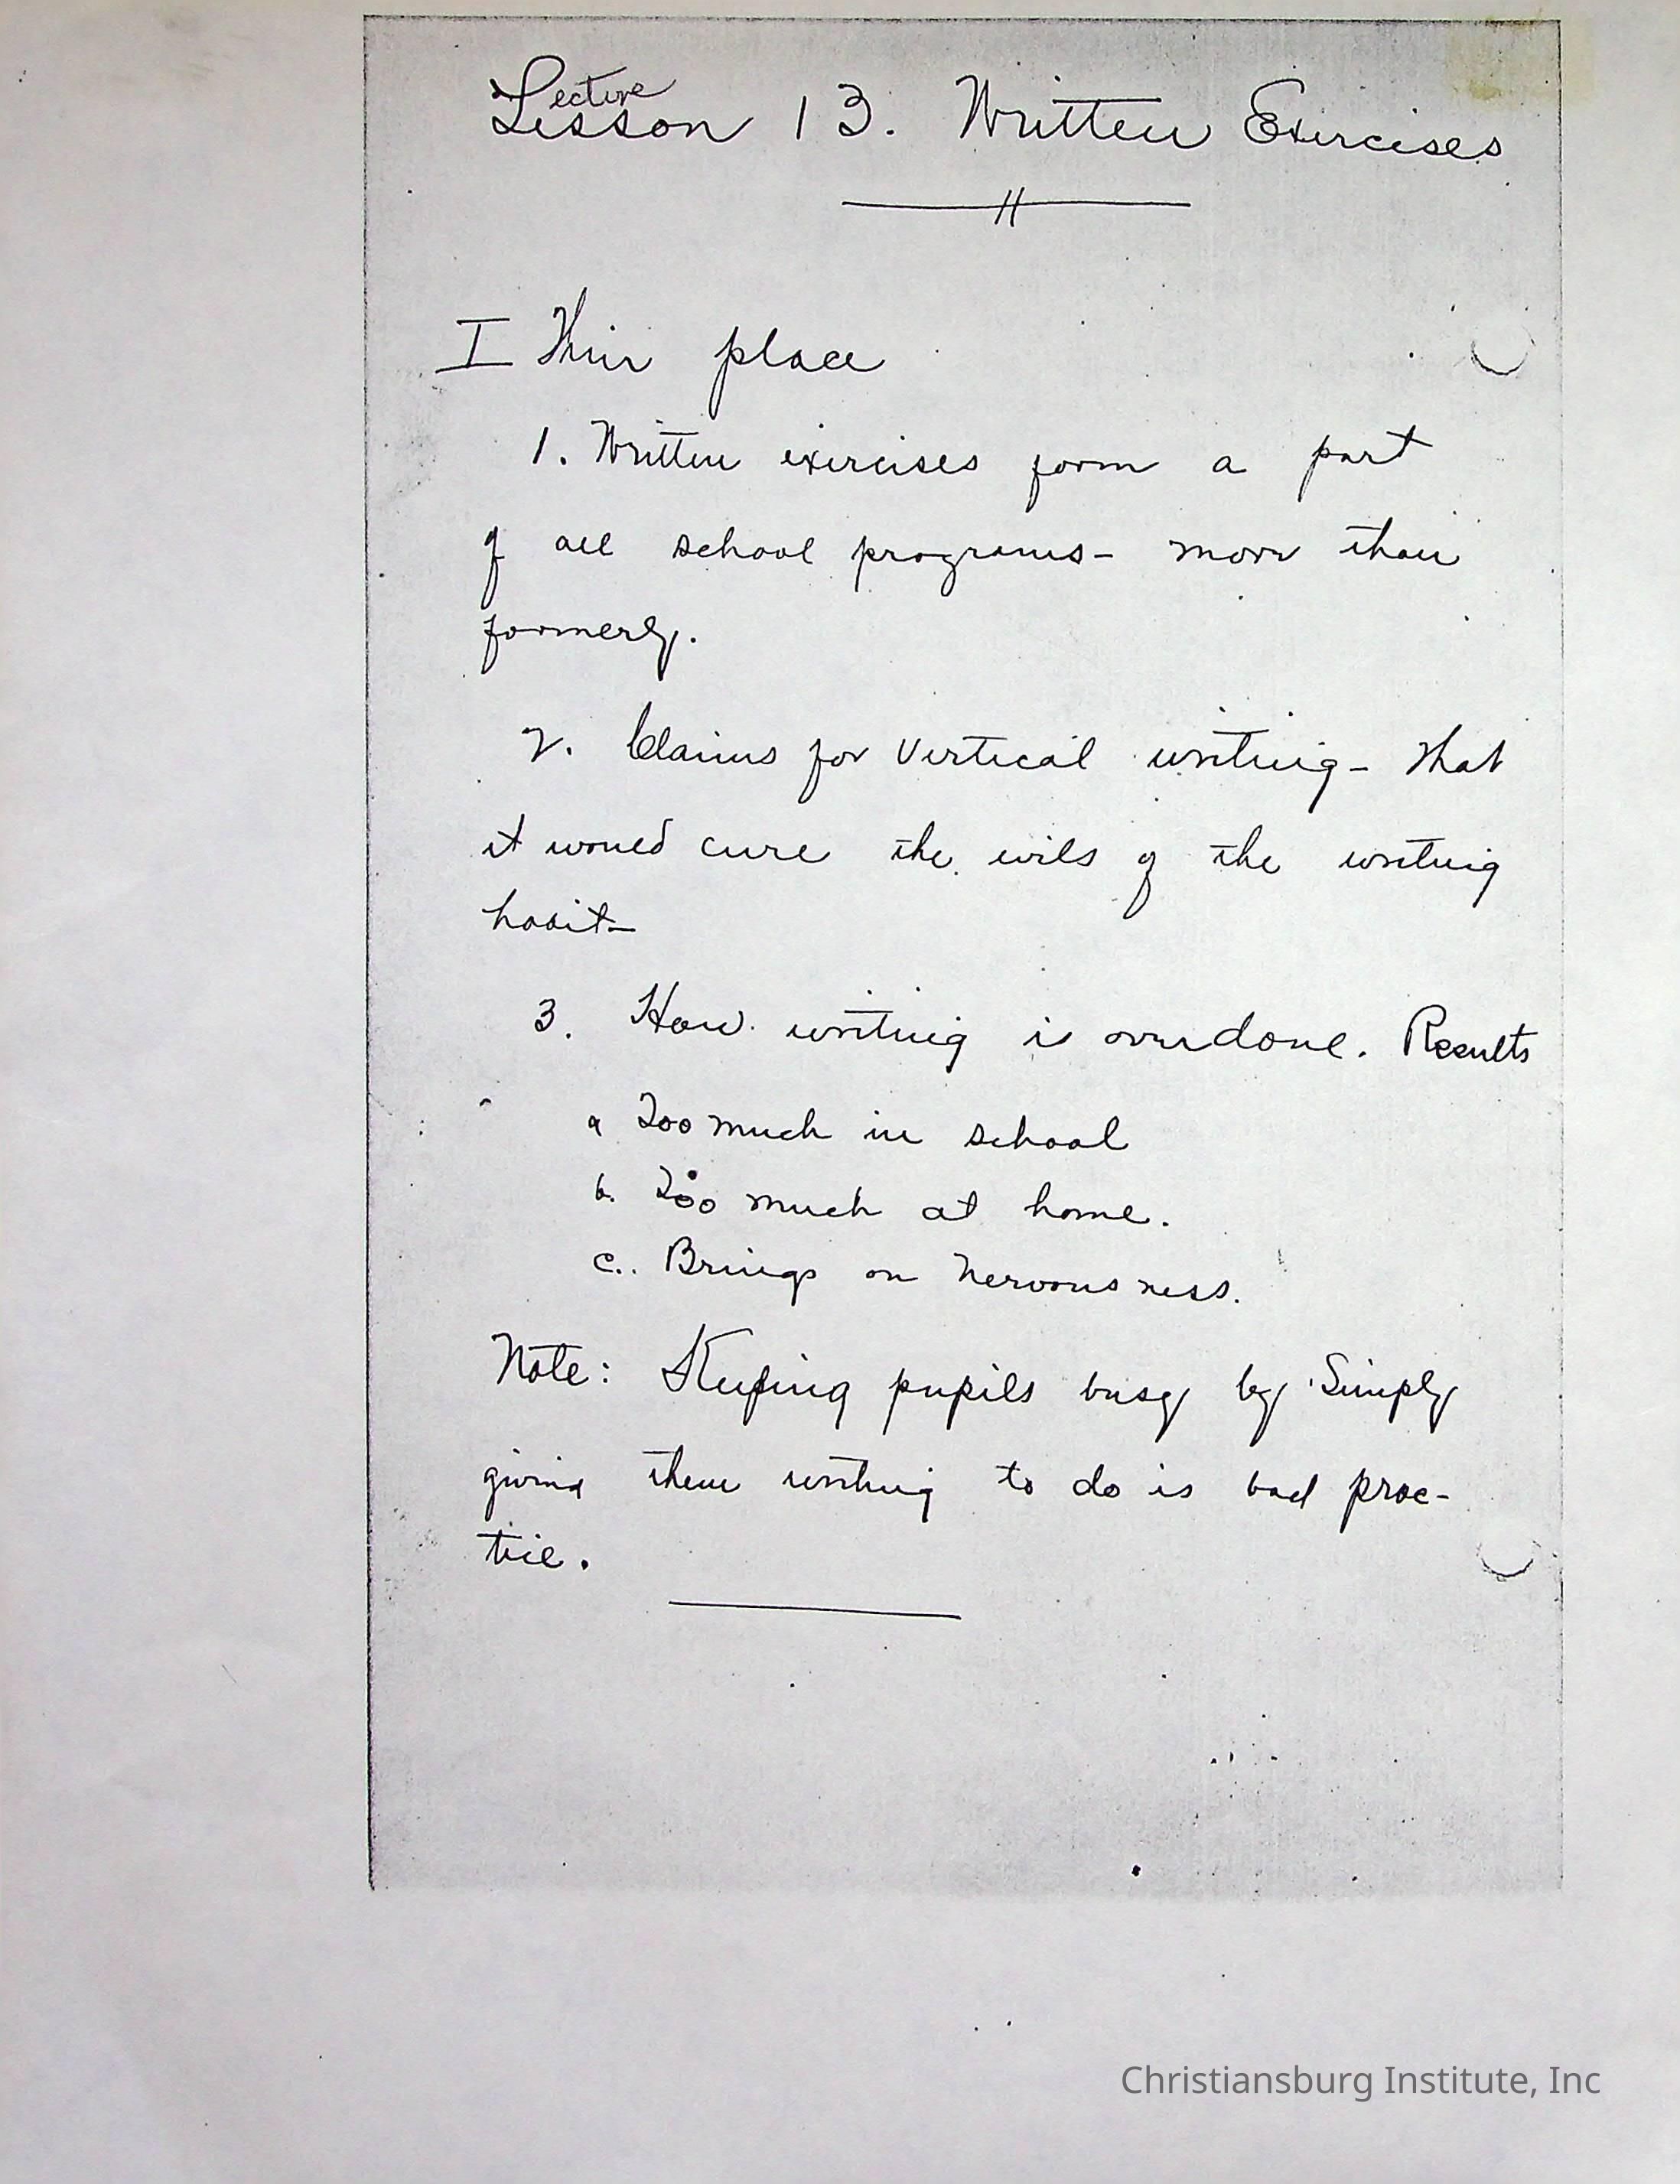 Lecture
Lesson 13. Written Exercises
I Their place
1. Written exercises form a part
of all school programs - more than
formerly.
2. Claims for Vertical writing - that
it would cure the evils of the writing
habit -
3. How writing is overdone. Results
a Too much in school
b. Too much at home.
c. Brings on nervousness.
Note: Keeping pupils busy by Simply
giving them writing to do is bad prac-
tice.
Christiansburg Institute, Inc